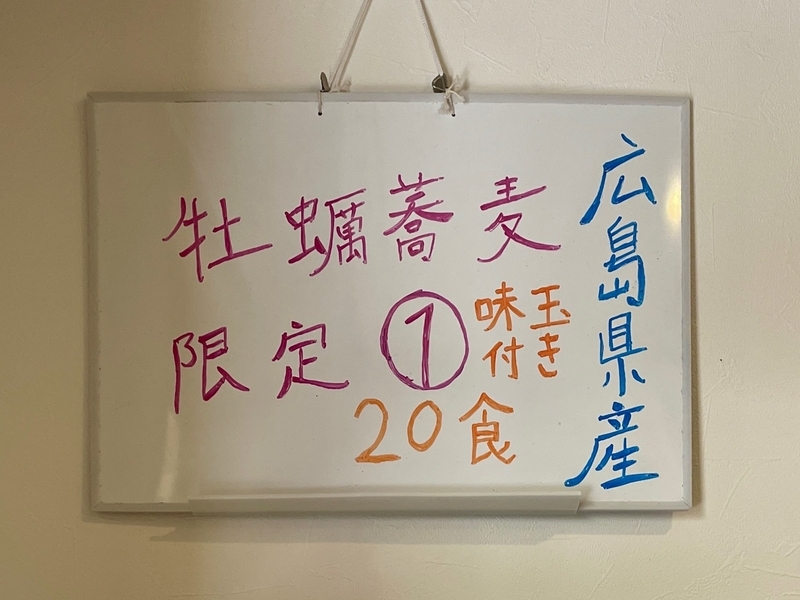 広島県産
牡蠣蕎麦
限定①
味玉
付き
20食